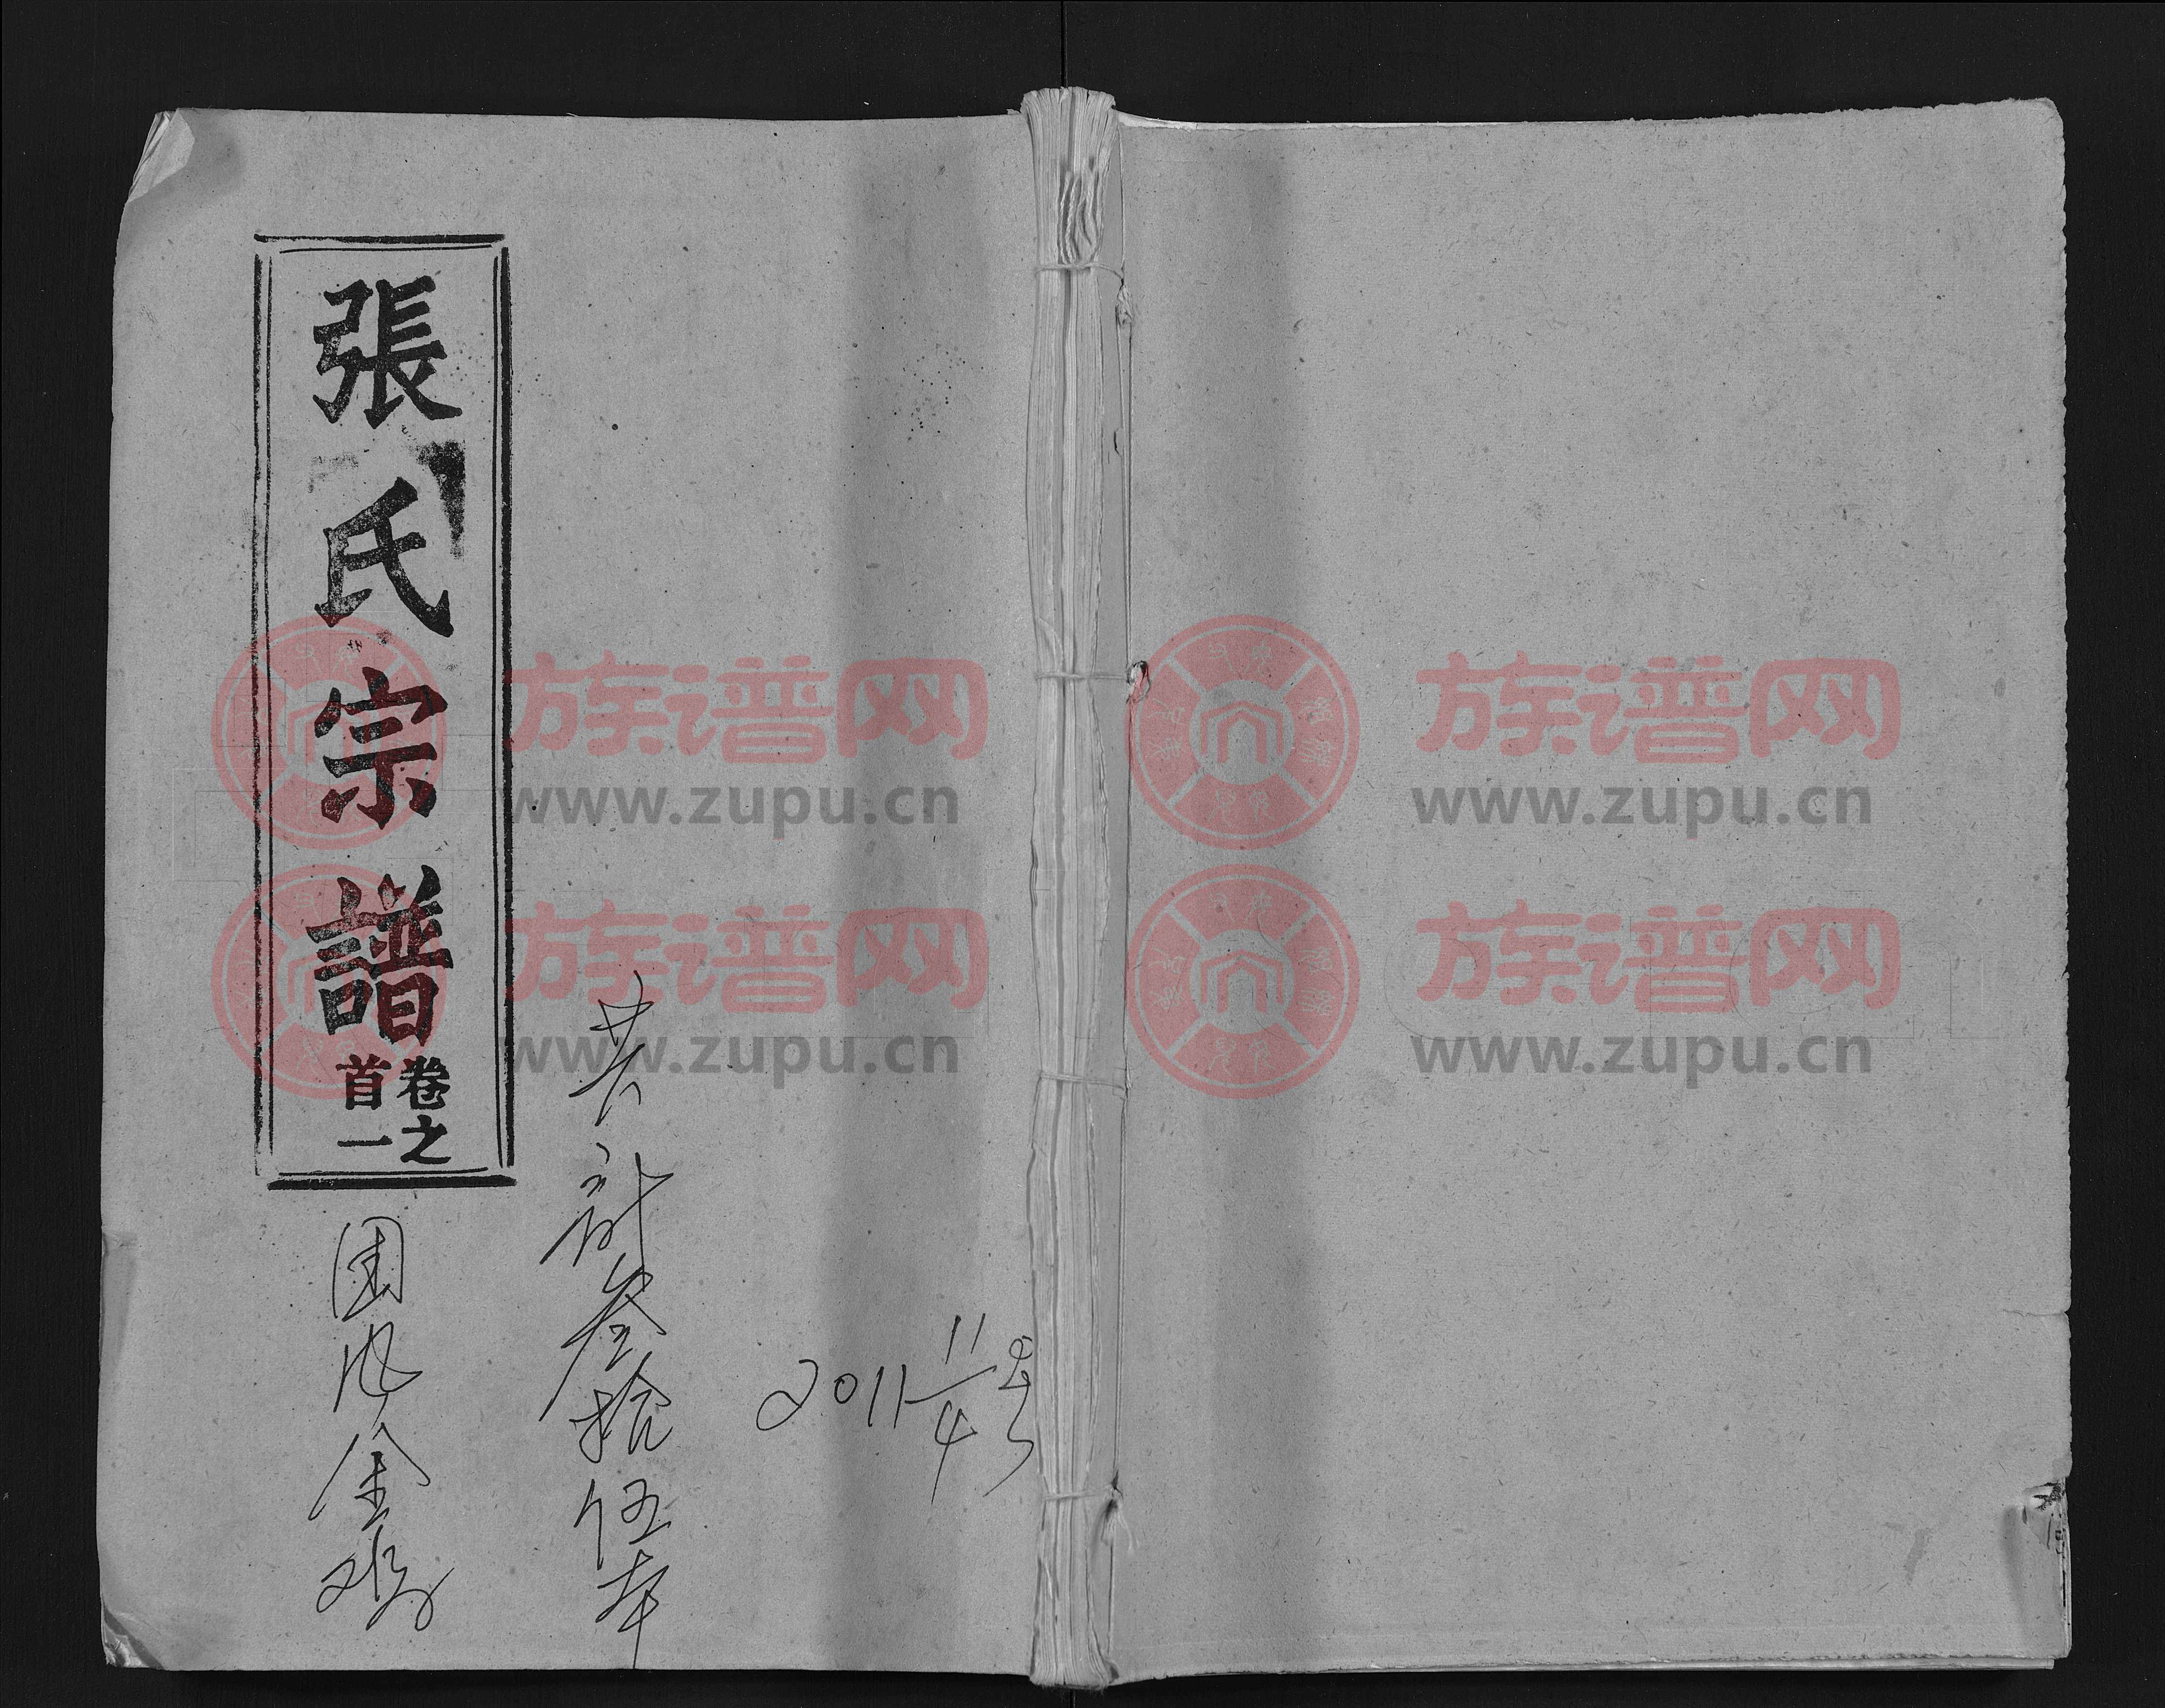 張氏宗譜
卷之
首一
共計叁拾伍本
团风金
2011 11/4
族谱网
www.zupu.cn
族谱网
www.zupu.cn
族谱网
www.zupu.cn
族谱网
www.zupu.cn